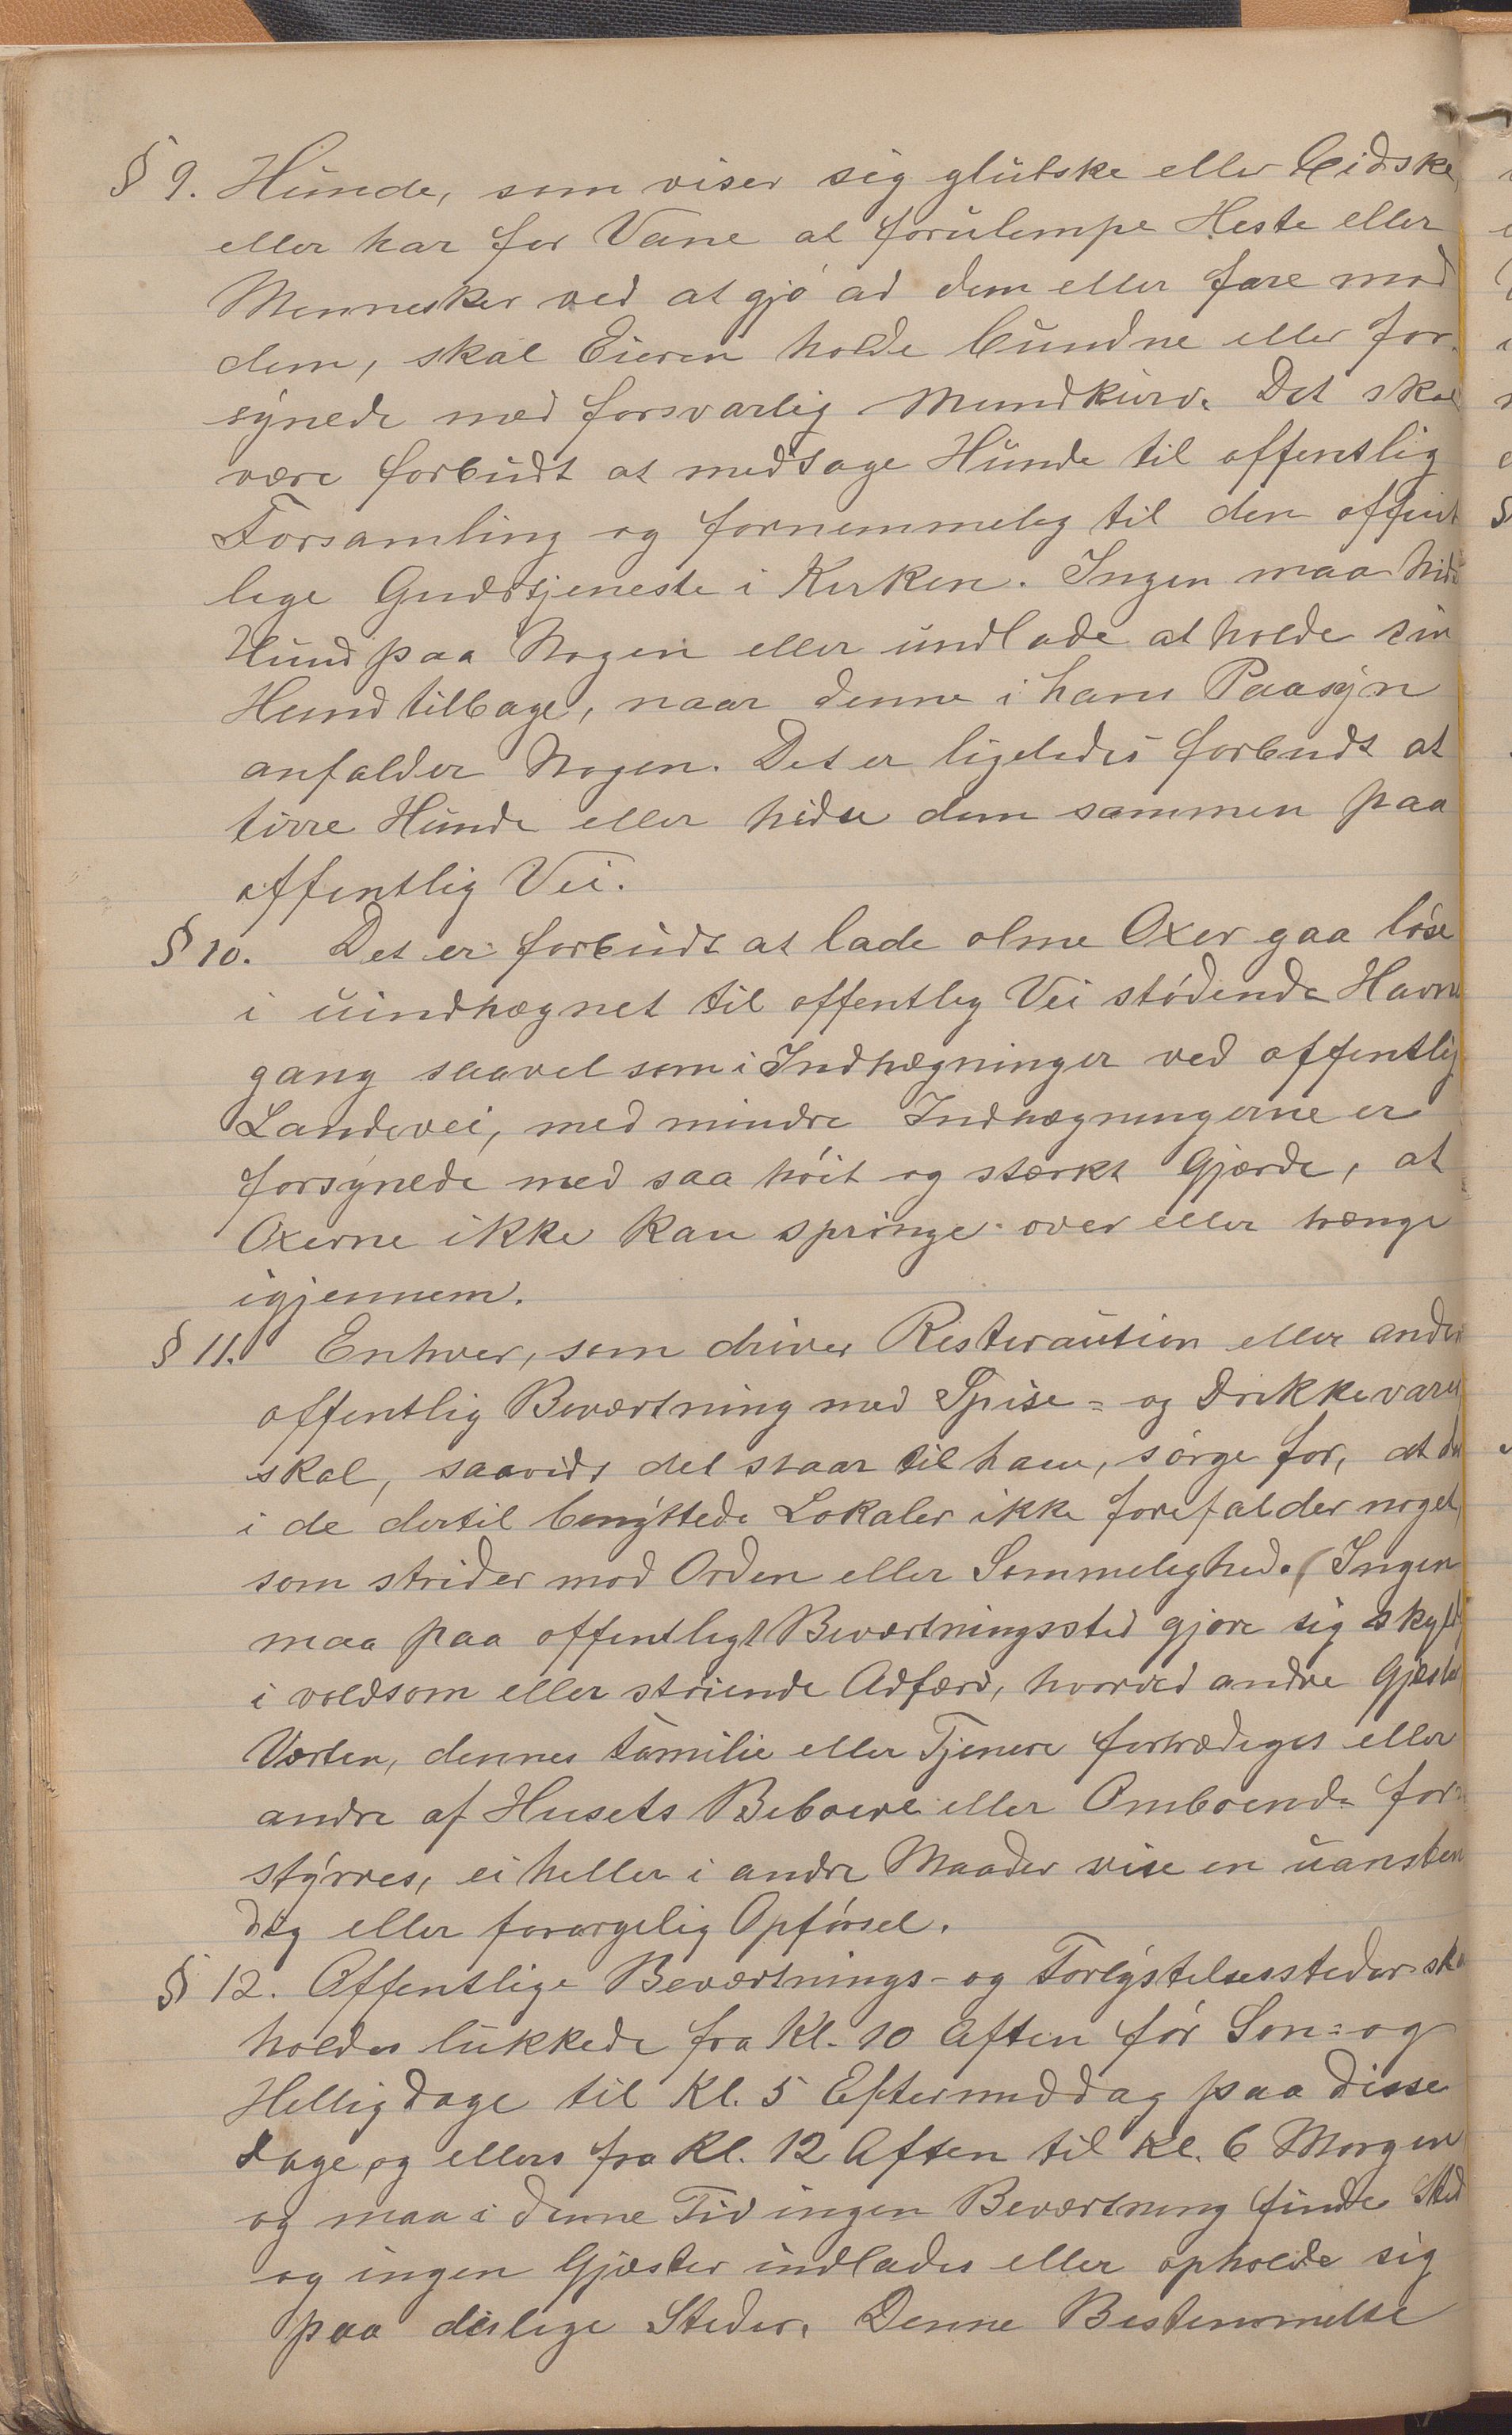 § 9. Hunde, som viser sig glubske eller bidske,
eller har for Vane at forulempe Heste eller
Mennesker ved at gjø ad dem eller fare mod
dem, skal Eieren holde bundne eller for-
synede med forsvarlig Mundkurv. Det skal
være forbudt at medtage Hunde til offentlig
Forsamling og fornemmelig til den offent
lige Gudstjeneste i Kirken. Ingen maa hidse
Hund paa Nogen eller undlade at holde sin
Hund tilbage, naar denne i hans Paasyn
anfalder Nogen. Det er ligeledes forbudt at
tirre Hunde eller hidse dem sammen paa
offentlig Vei.
§ 10. Det er forbudt at lade olme Oxer gaa løse
i uindhægnet til offentlig Vei stødende Havne
gang saavel som i Indhægninger ved offentlig
Landevei, med mindre Indhægningerne er
forsynede med saa høit og stærkt Gjærde, at
Oxerne ikke kan springe over eller trænge
igjennem.
§ 11. Enhver, som driver Resteraution eller anden
offentlig Beværtning med Spise- og Drikkevarer
skal, saavidt det staar til ham, sørge for, at der
i de dertil benyttede Lokaler ikke forefalder noget,
som strider mod Orden eller Sømmelighed. (Ingen
maa paa offentligt Beværtningssted gjøre sig skyldig
i voldsom eller støiende Adfærd, hvorved andre Gjæster
Værten, dennes Familie eller Tjenere fortrædiges eller
andre af Husets Beboere eller Omboende for-
styrres, ei heller i andre Maader vise en uansten
dig eller forargelig Opførsel.
§ 12. Offentlige Beværtnings- og Forlystelsessteder skal
holdes lukkede fra Kl. 10 Aften før Søn- og
Helligdage til Kl. 5 Eftermiddag paa disse
Dage og ellers fra Kl. 12 Aften til Kl. 6 Morgen
og maa i denne Tid ingen Beværtning finde Sted
og ingen Gjæster indlades eller opholde sig
paa deslige Steder. Denne Bestemmelse